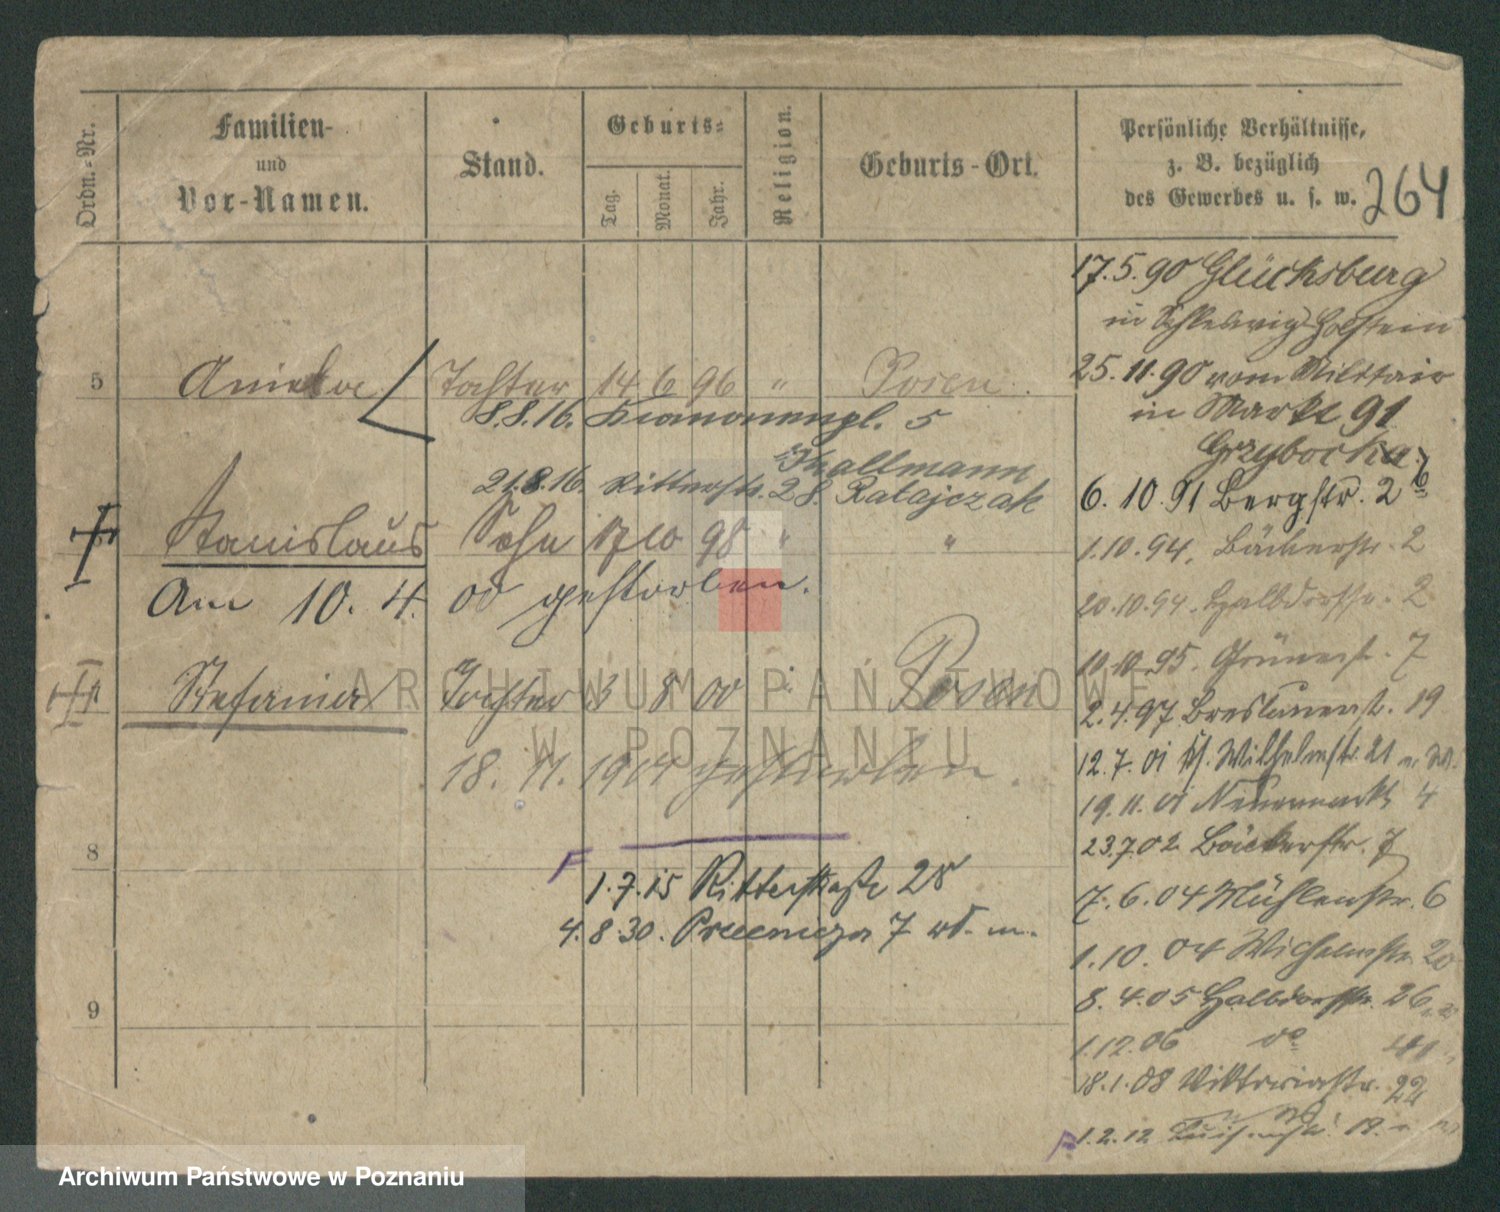 Ordn.-Nr.
Familien-
und
Vor-Namen.
Stand.
Geburts-
Tag.
Monat.
Jahr.
Religion.
Geburts-Ort.
Persönliche Verhältnisse,
z. B. bezüglich
des Gewerbes u. s. w.
264
5 Aniela Tochter 14 6 96 " Posen
8.8.16. 5
21.8.16. Ritterstr. 28. Ratajczak
Thallmann
Stanislaus Sohn 17 10 98 " "
Am 10. 4. 00 gestorben.
Stefania Tochter 3 8 00 " Posen
18. 11. 1904 gestorben.
8
1.7.15 Ritterstraße 28
4.8.30. 7
9
17.5.90 Glücksburg
in Schleswig Holstein
25.11.90 vom Militair
in Markt 91
6.10.91 Bergstr. 2b
1.10.94. Bäckerstr. 2
20.10.94. Halbdorfstr. 2
10.10.95. Grünestr. 7
2.4.97 Breslauerstr. 19
12.7.01 Wilhelmstr. 21
19.11.01 Neuermarkt 4
23.7.02 Bäckerstr. 7
7.6.04 Mühlenstr. 6
1.10.04 Wilhelmstr. 20
8.4.05 Halbdorfstr. 26
1.12.06 do
18.1.08 Viktoriastr. 22
1.2.12
ARCHIWUM PAŃSTWOWE
W POZNANIU
Archiwum Państwowe w Poznaniu